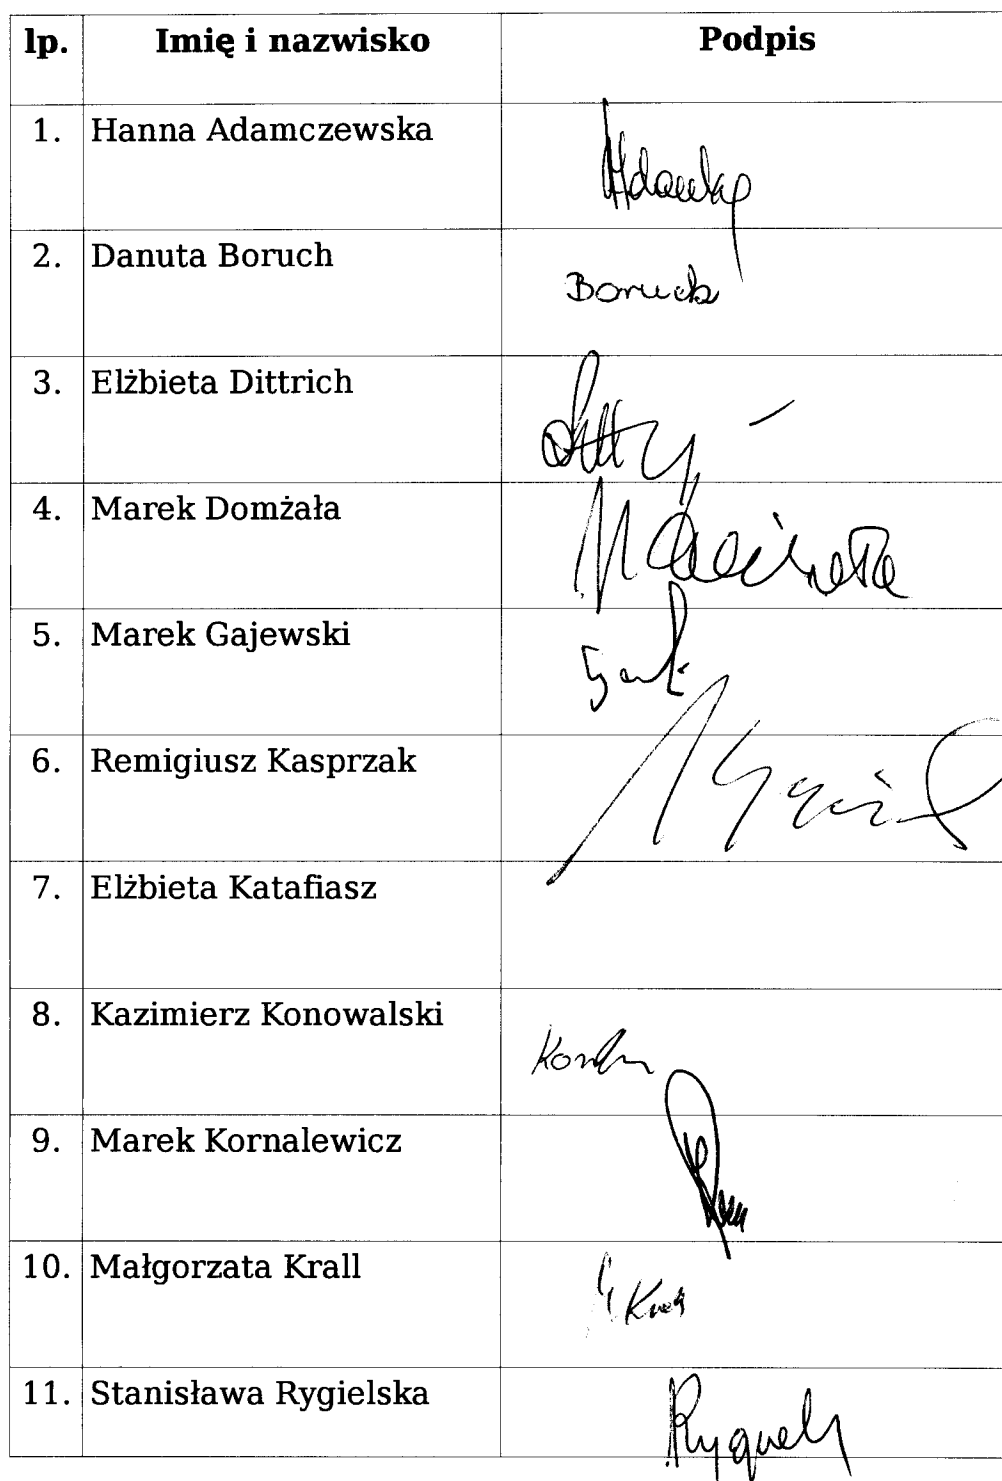 lp. Imię i nazwisko Podpis
1. Hanna Adamczewska
2. Danuta Boruch Boruch
3. Elżbieta Dittrich
4. Marek Domżała
5. Marek Gajewski
6. Remigiusz Kasprzak
7. Elżbieta Katafiasz
8. Kazimierz Konowalski
9. Marek Kornalewicz
10. Małgorzata Krall
11. Stanisława Rygielska